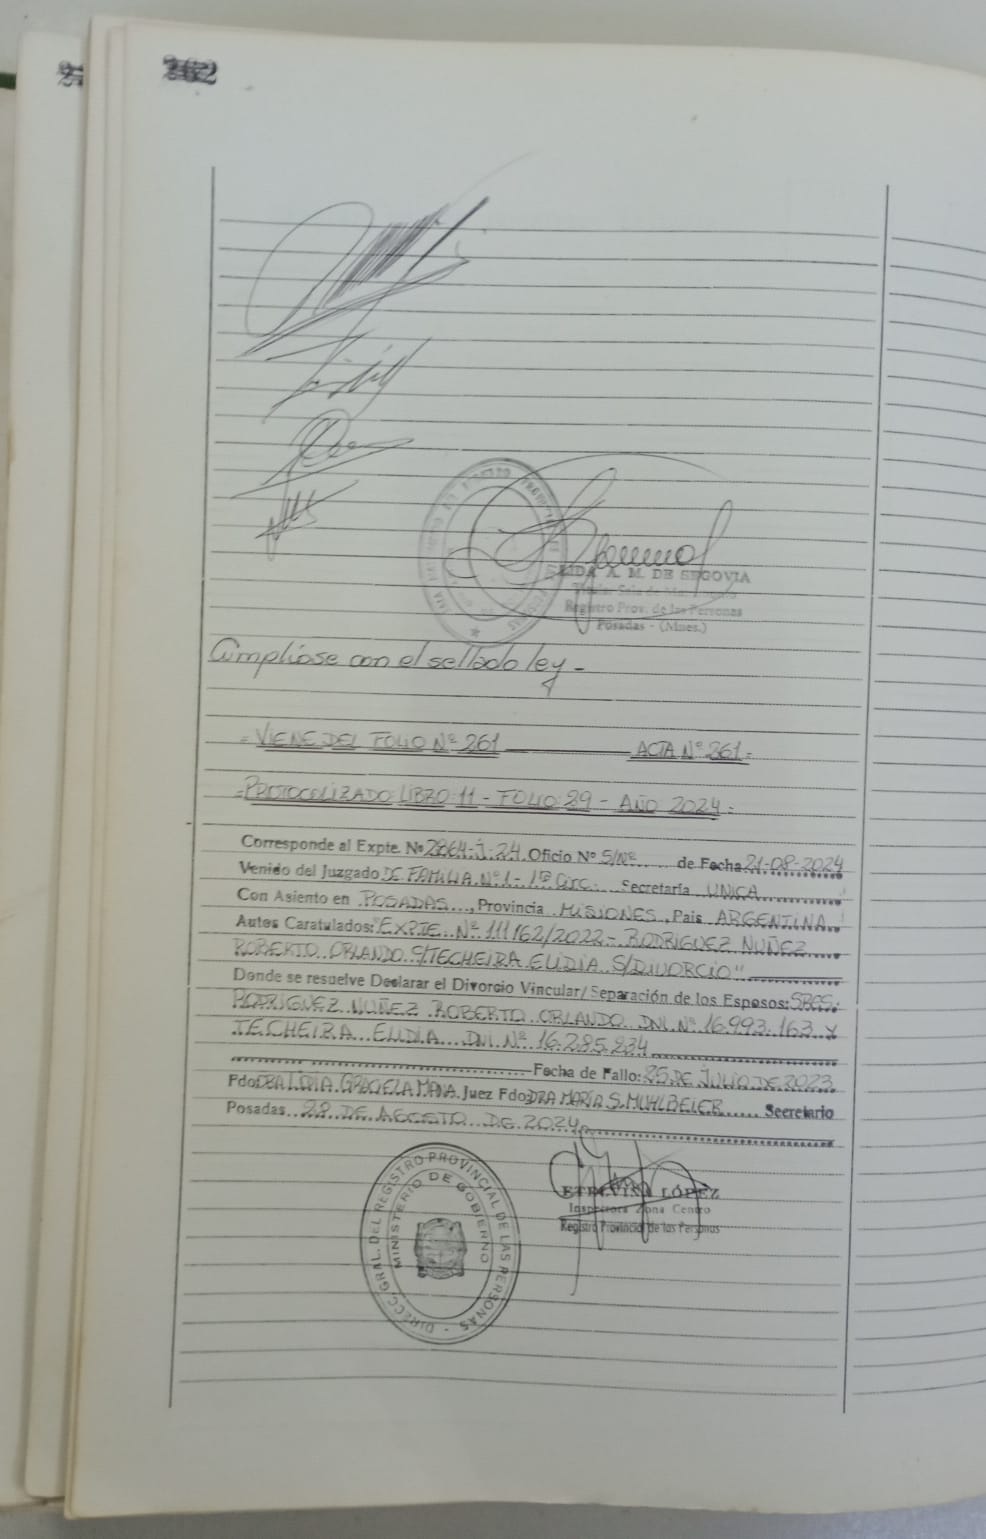 262
A. M. DE SEGOVIA
Registro Prov. de las Personas
Posadas - (Mnes.)
Cumpliose con el sellado ley -
= VIENE DEL FOLIO Nº 261 ACTA Nº 261 =
= PROTOCOLIZADO LIBRO 11 - FOLIO 89 - AÑO 2024 =
Corresponde al Expte. Nº 2864-J-24 Oficio Nº S/Nº de Fecha 21-08-2024
Venido del Juzgado DE FAMILIA Nº 1 - 1ra Circ. Secretaría UNICA
Con Asiento en POSADAS, Provincia MISIONES, Pais ARGENTINA
Autos Caratulados: "EXPTE. Nº 111162/2022 - RODRIGUEZ NUÑEZ
ROBERTO ORLANDO C/TECHEIRA ELIDIA S/DIVORCIO"
Donde se resuelve Declarar el Divorcio Vincular/Separación de los Esposos: SRES.
RODRIGUEZ NUÑEZ ROBERTO ORLANDO DNI. Nº 16.993.163 Y
TECHEIRA ELIDIA DNI. Nº 16.285.234
Fecha de Fallo: 25 DE JULIO DE 2023
Fdo: DRA LIDIA GRACIELA MANA Juez Fdo: DRA MARIA S. MUHLBEIER Secretario
Posadas 28 DE AGOSTO DE 2024
DIRECC. GRAL. DEL REGISTRO PROVINCIAL DE LAS PERSONAS
MINISTERIO DE GOBIERNO
LÓPEZ
Inspectora Zona Centro
Registro Provincial de las Personas